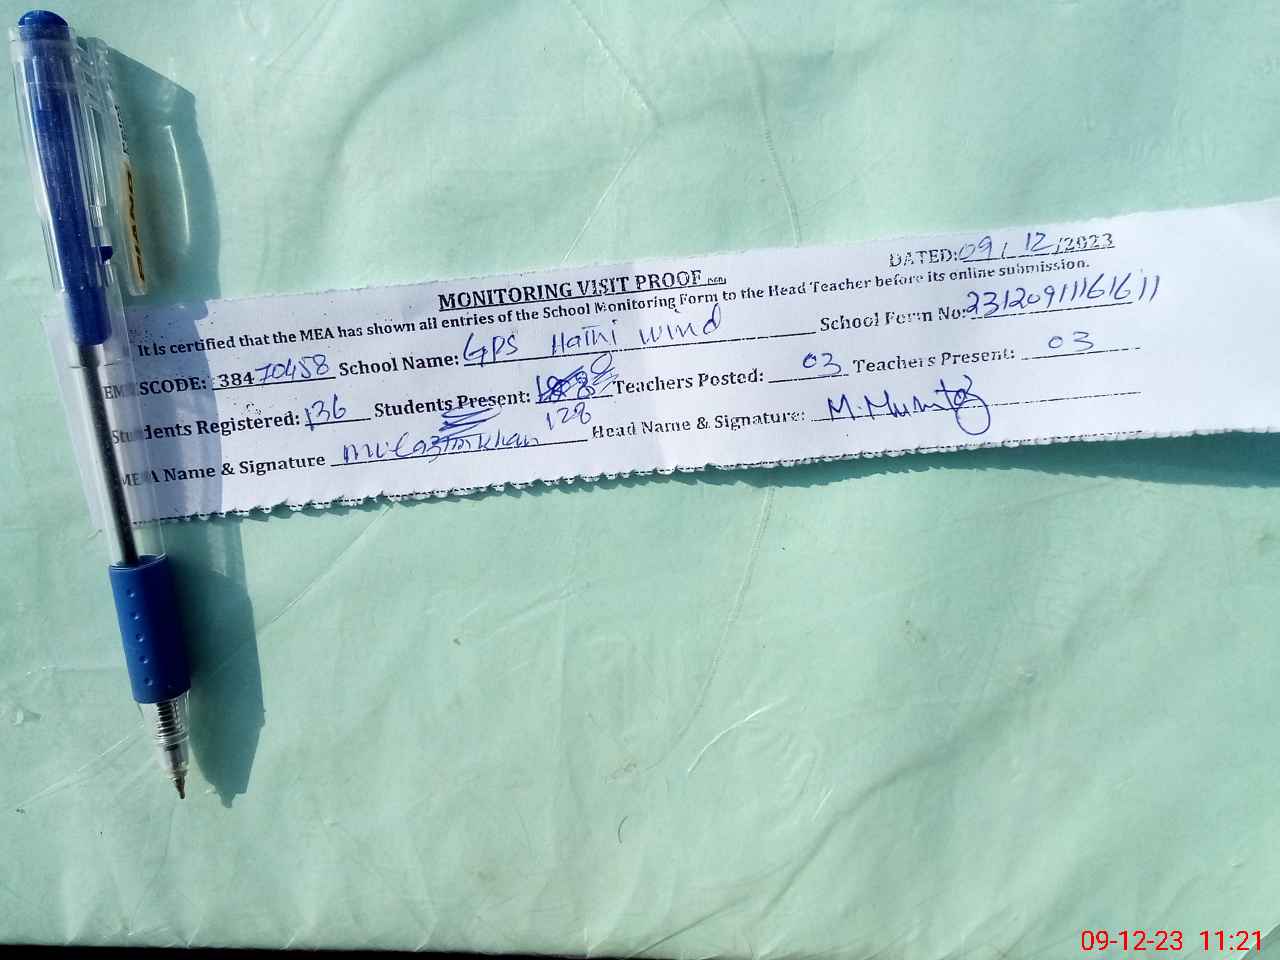 MONITORING VISIT PROOF
DATED: 09/12/2023
It is certified that the MEA has shown all entries of the School Monitoring Form to the Head Teacher before its online submission.
EMISCODE: 38470458 School Name: GPS Hathi Wind School Form No: 23120911161611
Students Registered: 136 Students Present: 128 Teachers Posted: 03 Teachers Present: 03
MEA Name & Signature Khan Head Name & Signature: M. Mumtaz
PIANO
09-12-23 11:21